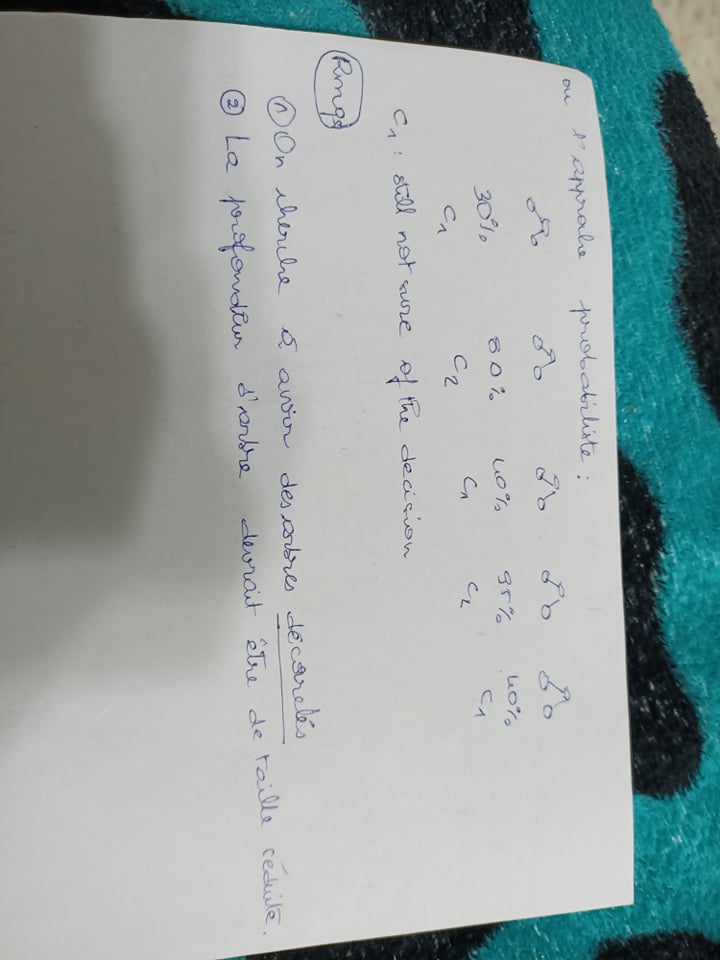 ou l'approche probabiliste :
30% 80% 40% 95% 40%
C1 C2 C1 C2 C1
C1 : still not sure of the decision
Rmqs
① On cherche à avoir des arbres décorrelés
② La profondeur d'arbre devrait être de taille réduite.